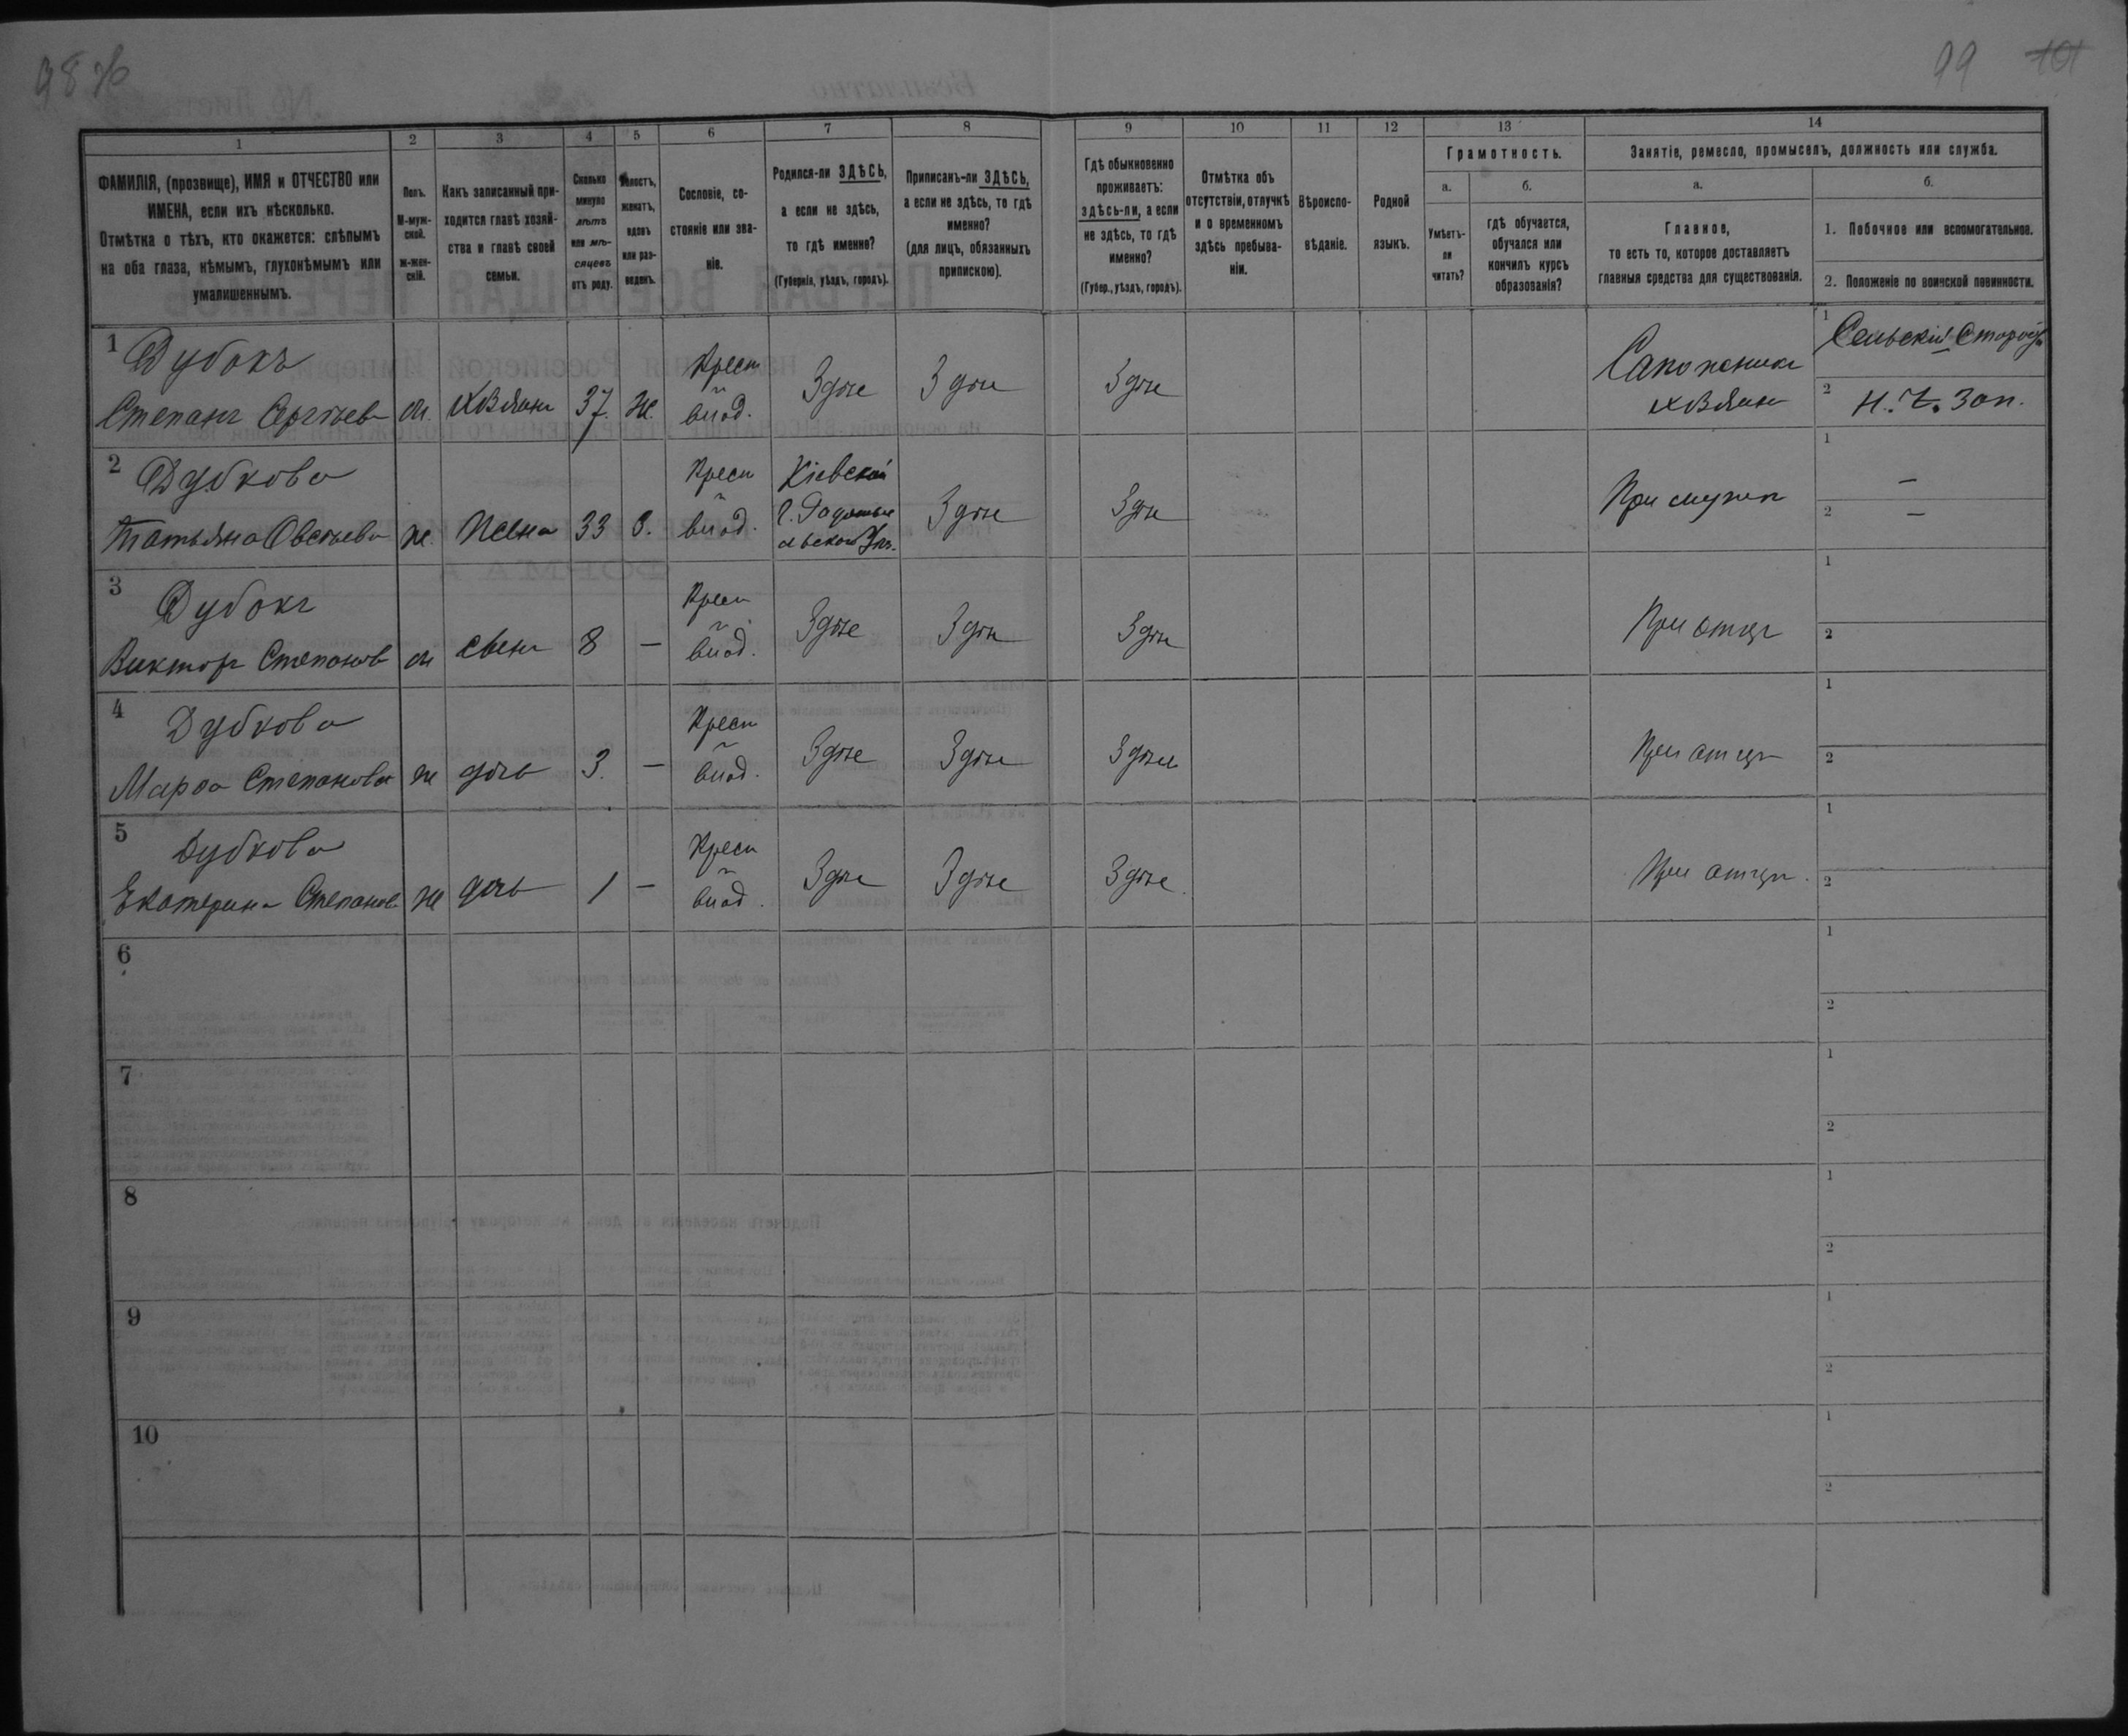 98 об
99 101
1 2 3 4 5 6 7 8 9 10 11 12 13 14
ФАМИЛІЯ, (прозвище), ИМЯ и ОТЧЕСТВО или
ИМЕНА, если ихъ нѣсколько.
Отмѣтка о тѣхъ, кто окажется: слѣпымъ
на оба глаза, нѣмымъ, глухонѣмымъ или
умалишеннымъ.
Полъ.
М-муж-
ской.
ж-жен-
скій.
Какъ записанный при-
ходится главѣ хозяй-
ства и главѣ своей
семьи.
Сколько
минуло
лѣтъ
или мѣ-
сяцевъ
отъ роду.
Холостъ,
женатъ,
вдовъ
или раз-
веденъ.
Сословіе, со-
стояніе или зва-
ніе.
Родился-ли ЗДѢСЬ,
а если не здѣсь,
то гдѣ именно?
(Губернія, уѣздъ, городъ).
Приписанъ-ли ЗДѢСЬ,
а если не здѣсь, то гдѣ
именно?
(для лицъ, обязанныхъ
припискою).
Гдѣ обыкновенно
проживаетъ:
здѣсь-ли, а если
не здѣсь, то гдѣ
именно?
(Губер., уѣздъ, городъ).
Отмѣтка объ
отсутствіи, отлучкѣ
и о временномъ
здѣсь пребыва-
ніи.
Вѣроиспо-
вѣданіе.
Родной
языкъ.
Грамотность.
а.
Умѣетъ-
ли
читать?
б.
гдѣ обучается,
обучался или
кончилъ курсъ
образованія?
Занятіе, ремесло, промыселъ, должность или служба.
а.
Главное,
то есть то, которое доставляетъ
главныя средства для существованія.
б.
1. Побочное или вспомогательное.
2. Положеніе по воинской повинности.
1 Дубокъ
Степанъ Сергѣевъ м. хозяинъ 37. Ж. Крест. влад. Здѣсь Здѣсь Здѣсь
Сапожникъ
хозяинъ
1 Сельскій
2 Н. Ч. Зап.
2 Дубкова
Татьяна ж. жена 33 З. Крест. влад.
Кіевской
г. Радомы-
сльскаго Уѣз.
Здѣсь Здѣсь
При мужѣ
1 —
2 —
3 Дубокъ
Викторъ Степановъ м сынъ 8 — Крест. влад. Здѣсь Здѣсь Здѣсь При отцѣ
1
2
4 Дубкова
Марфа Степанова ж дочь 3. — Крест. влад. Здѣсь Здѣсь Здѣсь При отцѣ
1
2
5 Дубкова
Екатерина Степанова ж дочь 1 — Крест. влад. Здѣсь Здѣсь Здѣсь При отцѣ.
1
2
6
1
2
7
1
2
8
1
2
9
1
2
10
1
2